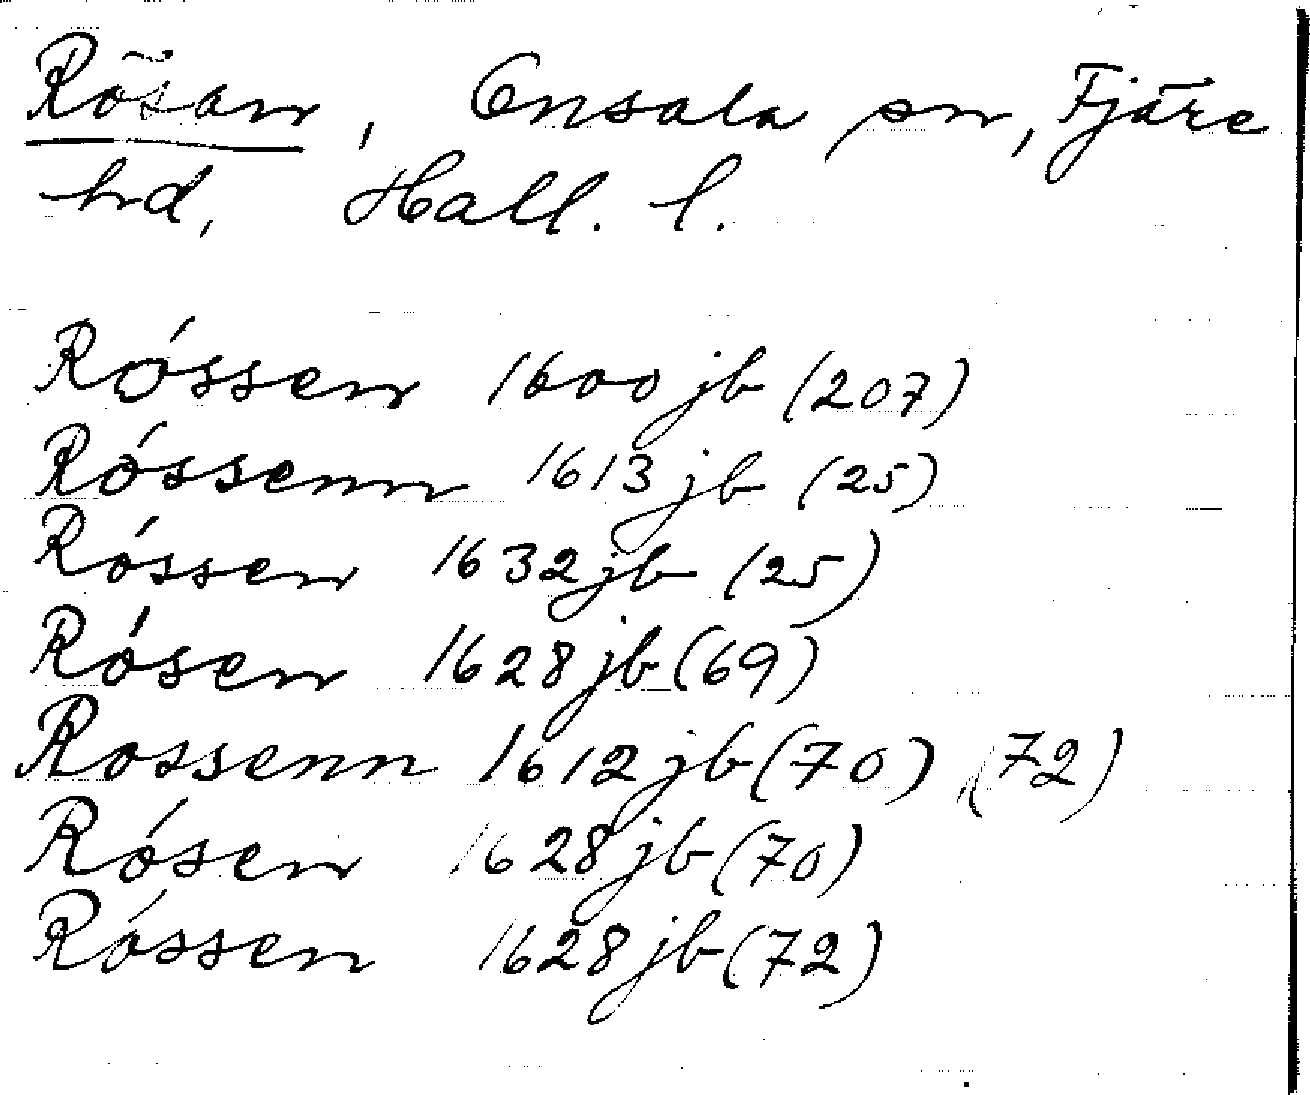 Rösan, Onsala sn, Fjäre
hd, Hall. l.
Róssen 1600 jb (207)
Róssenn 1613 jb (25)
Róssen 1632 jb (25)
Rósen 1628 jb (69)
Rossenn 1612 jb (70) (72)
Rósen 1628 jb (70)
Róssen 1628 jb (72)